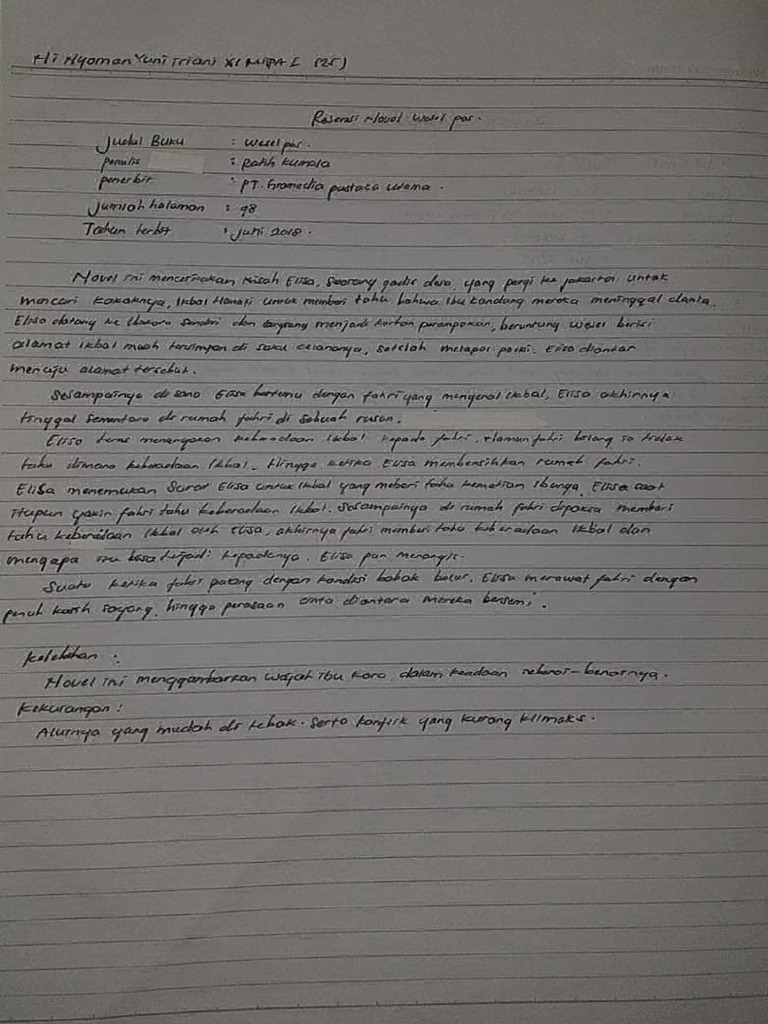 Ni Nyoman Yuni Triani XI MIPA I (25)
Resensi Novel Wesel pos.
Judul Buku : Wesel pos.
penulis : Ratih Kumala
penerbit : PT. Gramedia pustaka utama.
Jumlah halaman : 98
Tahun terbit : Juni 2018.
Novel ini menceritakan kisah Elisa, seorang gadis desa, yang pergi ke jakarta untuk
mencari kakaknya, Ikbal Hanafi untuk memberi tahu bahwa Ibu kandung mereka meninggal dunia.
Elisa datang ke Ibukota sendiri dan langsung menjadi korban perampokan, beruntung wesel berisi
alamat Ikbal masih tersimpan di saku celananya, setelah melapor polisi. Elisa diantar
menuju alamat tersebut.
Sesampainya di sana Elisa bertemu dengan fahri yang mengenal Ikbal, Elisa akhirnya
tinggal sementara di rumah fahri di sebuah rusun.
Elisa terus menanyakan keberadaan Ikbal kepada fahri. Namun fahri bilang ia tidak
tahu dimana keberadaan Ikbal. Hingga ketika Elisa membersihkan rumah fahri.
Elisa menemukan surat Elisa untuk Ikbal yang meberi tahu kematian Ibunya. Elisa saat
itupun yakin fahri tahu keberadaan Ikbal. Sesampainya di rumah fahri dipaksa memberi
tahu keberadaan Ikbal oleh Elisa, akhirnya fahri memberi tahu keberadaan Ikbal dan
mengapa itu bisa terjadi kepadanya. Elisa pun menangis.
Suatu ketika fahri pulang dengan kondisi babak belur. Elisa merawat fahri dengan
penuh kasih sayang, hingga perasaan cinta diantara mereka bersemi.
Kelebihan :
Novel ini menggambarkan wajah ibu kota, dalam keadaan sebenar-benarnya.
Kekurangan :
Alurnya yang mudah di tebak. Serta konflik yang kurang klimaks.